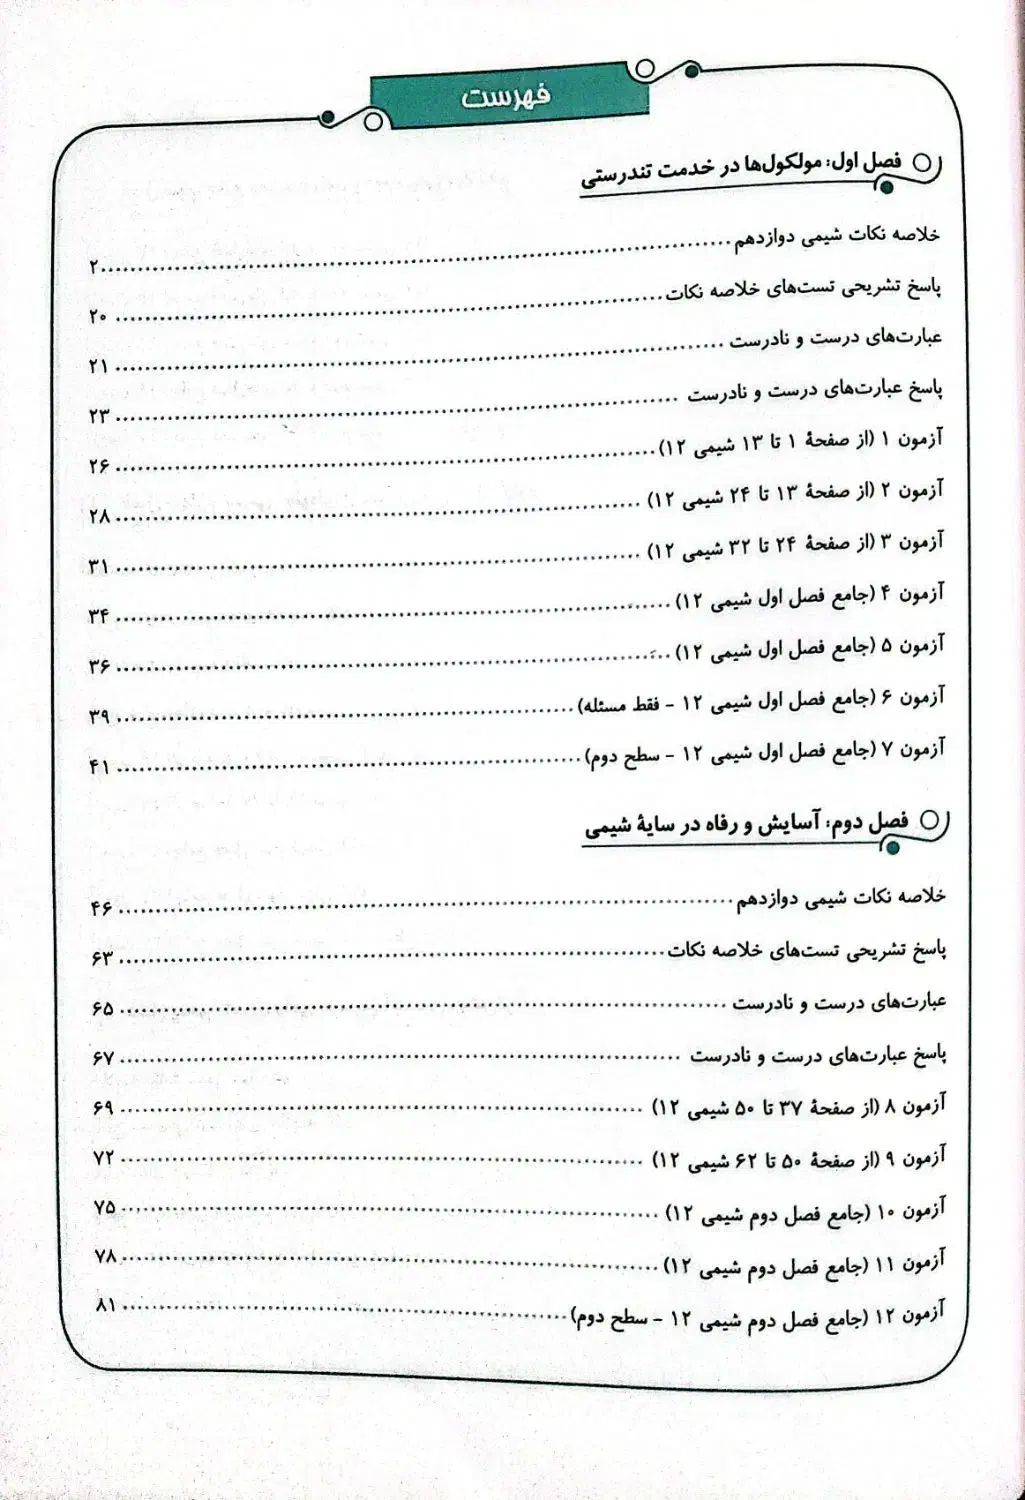 فهرست
فصل اول: مولکول‌ها در خدمت تندرستی
خلاصه نکات شیمی دوازدهم ........ ۲
پاسخ تشریحی تست‌های خلاصه نکات ........ ۲۰
عبارت‌های درست و نادرست ........ ۲۱
پاسخ عبارت‌های درست و نادرست ........ ۲۳
آزمون ۱ (از صفحهٔ ۱ تا ۱۳ شیمی ۱۲) ........ ۲۶
آزمون ۲ (از صفحهٔ ۱۳ تا ۲۴ شیمی ۱۲) ........ ۲۸
آزمون ۳ (از صفحهٔ ۲۴ تا ۳۲ شیمی ۱۲) ........ ۳۱
آزمون ۴ (جامع فصل اول شیمی ۱۲) ........ ۳۴
آزمون ۵ (جامع فصل اول شیمی ۱۲) ........ ۳۶
آزمون ۶ (جامع فصل اول شیمی ۱۲ - فقط مسئله) ........ ۳۹
آزمون ۷ (جامع فصل اول شیمی ۱۲ - سطح دوم) ........ ۴۱
فصل دوم: آسایش و رفاه در سایهٔ شیمی
خلاصه نکات شیمی دوازدهم ........ ۴۶
پاسخ تشریحی تست‌های خلاصه نکات ........ ۶۳
عبارت‌های درست و نادرست ........ ۶۵
پاسخ عبارت‌های درست و نادرست ........ ۶۷
آزمون ۸ (از صفحهٔ ۳۷ تا ۵۰ شیمی ۱۲) ........ ۶۹
آزمون ۹ (از صفحهٔ ۵۰ تا ۶۲ شیمی ۱۲) ........ ۷۲
آزمون ۱۰ (جامع فصل دوم شیمی ۱۲) ........ ۷۵
آزمون ۱۱ (جامع فصل دوم شیمی ۱۲) ........ ۷۸
آزمون ۱۲ (جامع فصل دوم شیمی ۱۲ - سطح دوم) ........ ۸۱